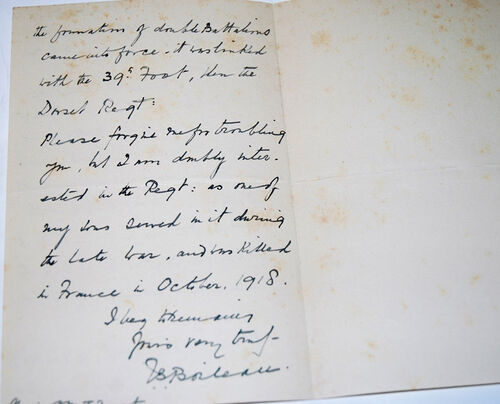 the formation of double Battalions
came into force. it was linked
with the 39th Foot, then the
Dorset Regt:
Please forgive me for troubling
you, but I am doubly inter-
ested in the Regt: as one of
my sons served in it during
the late War, and was killed
in France in October, 1918.
I beg to remain
Yours very truly
Boileau.